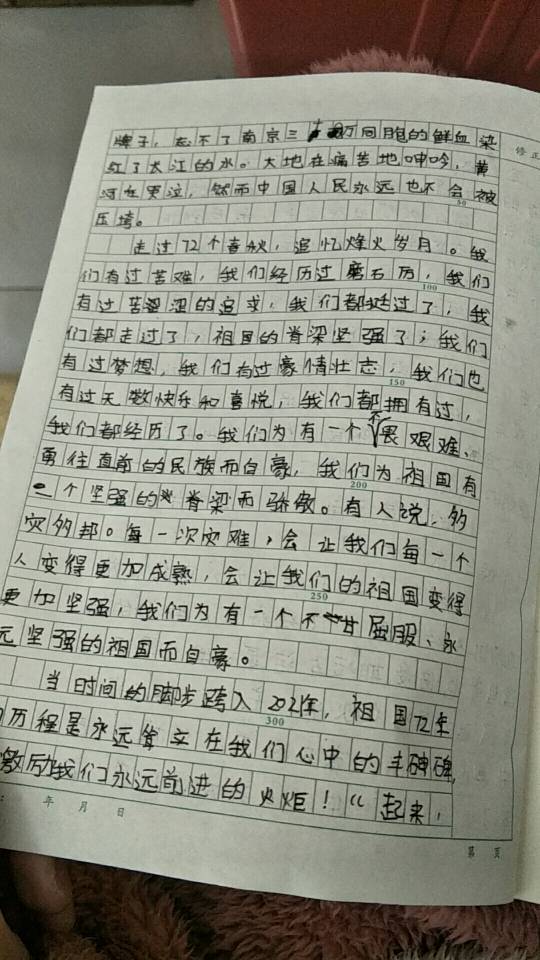 牌子，忘不了南京三十万同胞的鲜血染
红了长江的水。大地在痛苦地呻吟，黄
河在哭泣，然而中国人民永远也不会被
50
压垮。
走过72个春秋，追忆烽火岁月。我
们有过苦难，我们经历过磨石厉，我们
100
有过苦涩的追求，我们都挺过了，我
们都走过了，祖国的脊梁坚强了；我们
有过梦想，我们有过豪情壮志，我们也
150
有过无数快乐和喜悦，我们都拥有过，
我们都经历了。我们为有一个不畏艰难、
勇往直前的民族而自豪，我们为祖国有
200
一个坚强的脊梁而骄傲。有人说，多
灾多邦。每一次灾难，会让我们每一个
人变得更加成熟，会让我们的祖国变得
250
更加坚强，我们为有一个不甘屈服、永
远坚强的祖国而自豪。
当时间的脚步跨入2021年，祖国72年
300
的历程是永远耸立在我们心中的丰碑碑，
激励我们永远前进的火炬！“起来，
年 月 日
第 页
修正